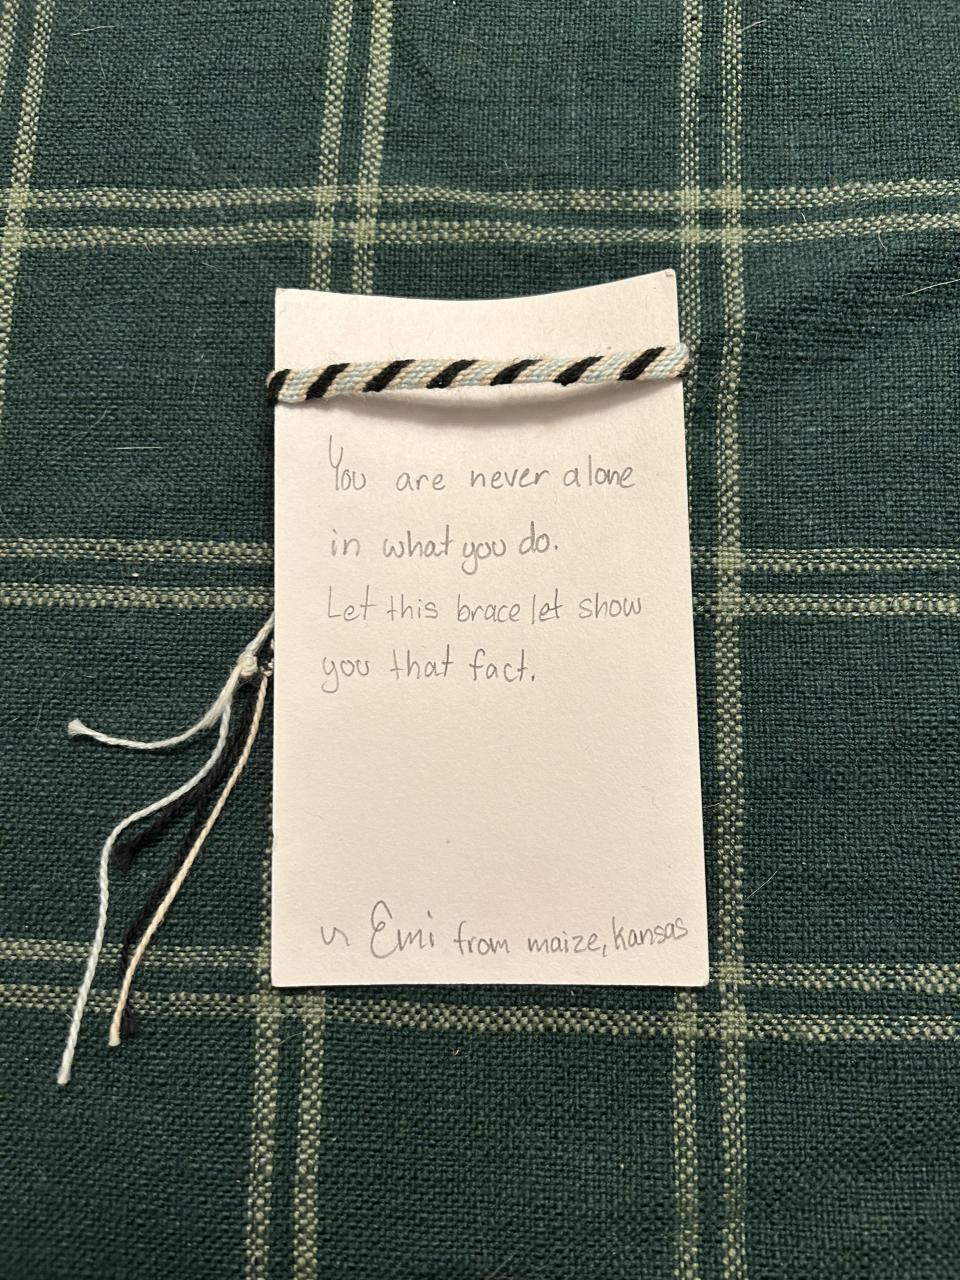 You are never alone
in what you do.
Let this bracelet show
you that fact.
~ Emi from maize, Kansas